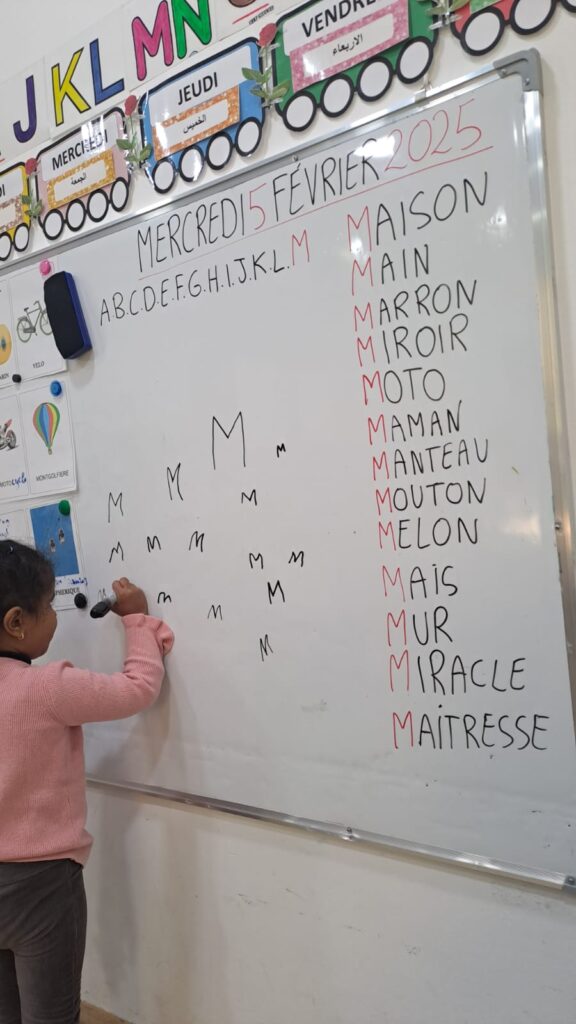 J K L M N
VENDRE
الاربعاء
JEUDI
الخميس
MERCREDI
الجمعة
MERCREDI 5 FÉVRIER 2025
A.B.C.D.E.F.G.H.I.J.K.L.M
MAISON
MAIN
MARRON
MIROIR
MOTO
MAMAN
MANTEAU
MOUTON
MELON
MAÏS
MUR
MIRACLE
MAITRESSE
M M
M M M
M M M M M
M M M M
M
VELO
MOTOcycle
MONTGOLFIERE